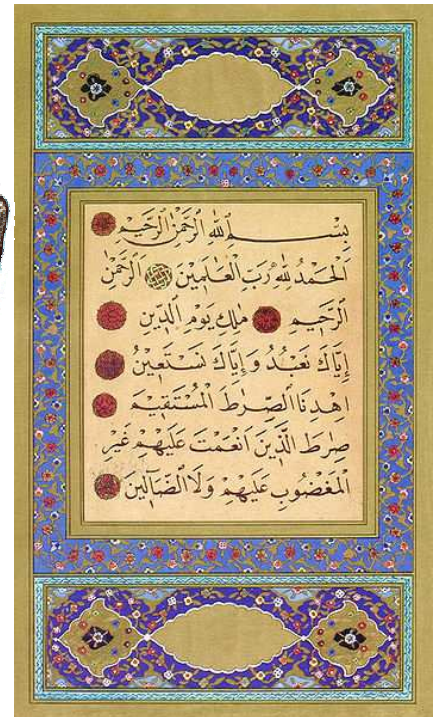 بِسْــــــمِ اللهِ الرَّحْمٰنِ الرَّحِيمِ
اَلْحَمْدُ لِلّٰهِ رَبِّ الْعَالَمِينَ الرَّحْمٰنِ
الرَّحِيمِ مَالِكِ يَوْمِ الدِّينِ
اِيَّاكَ نَعْبُدُ وَاِيَّاكَ نَسْتَعِينُ
اِهْدِنَا الصِّرَاطَ الْمُسْتَقِيمَ
صِرَاطَ الَّذِينَ اَنْعَمْتَ عَلَيْهِمْ غَيْرِ
الْمَغْضُوبِ عَلَيْهِمْ وَلَا الضَّالِّينَ